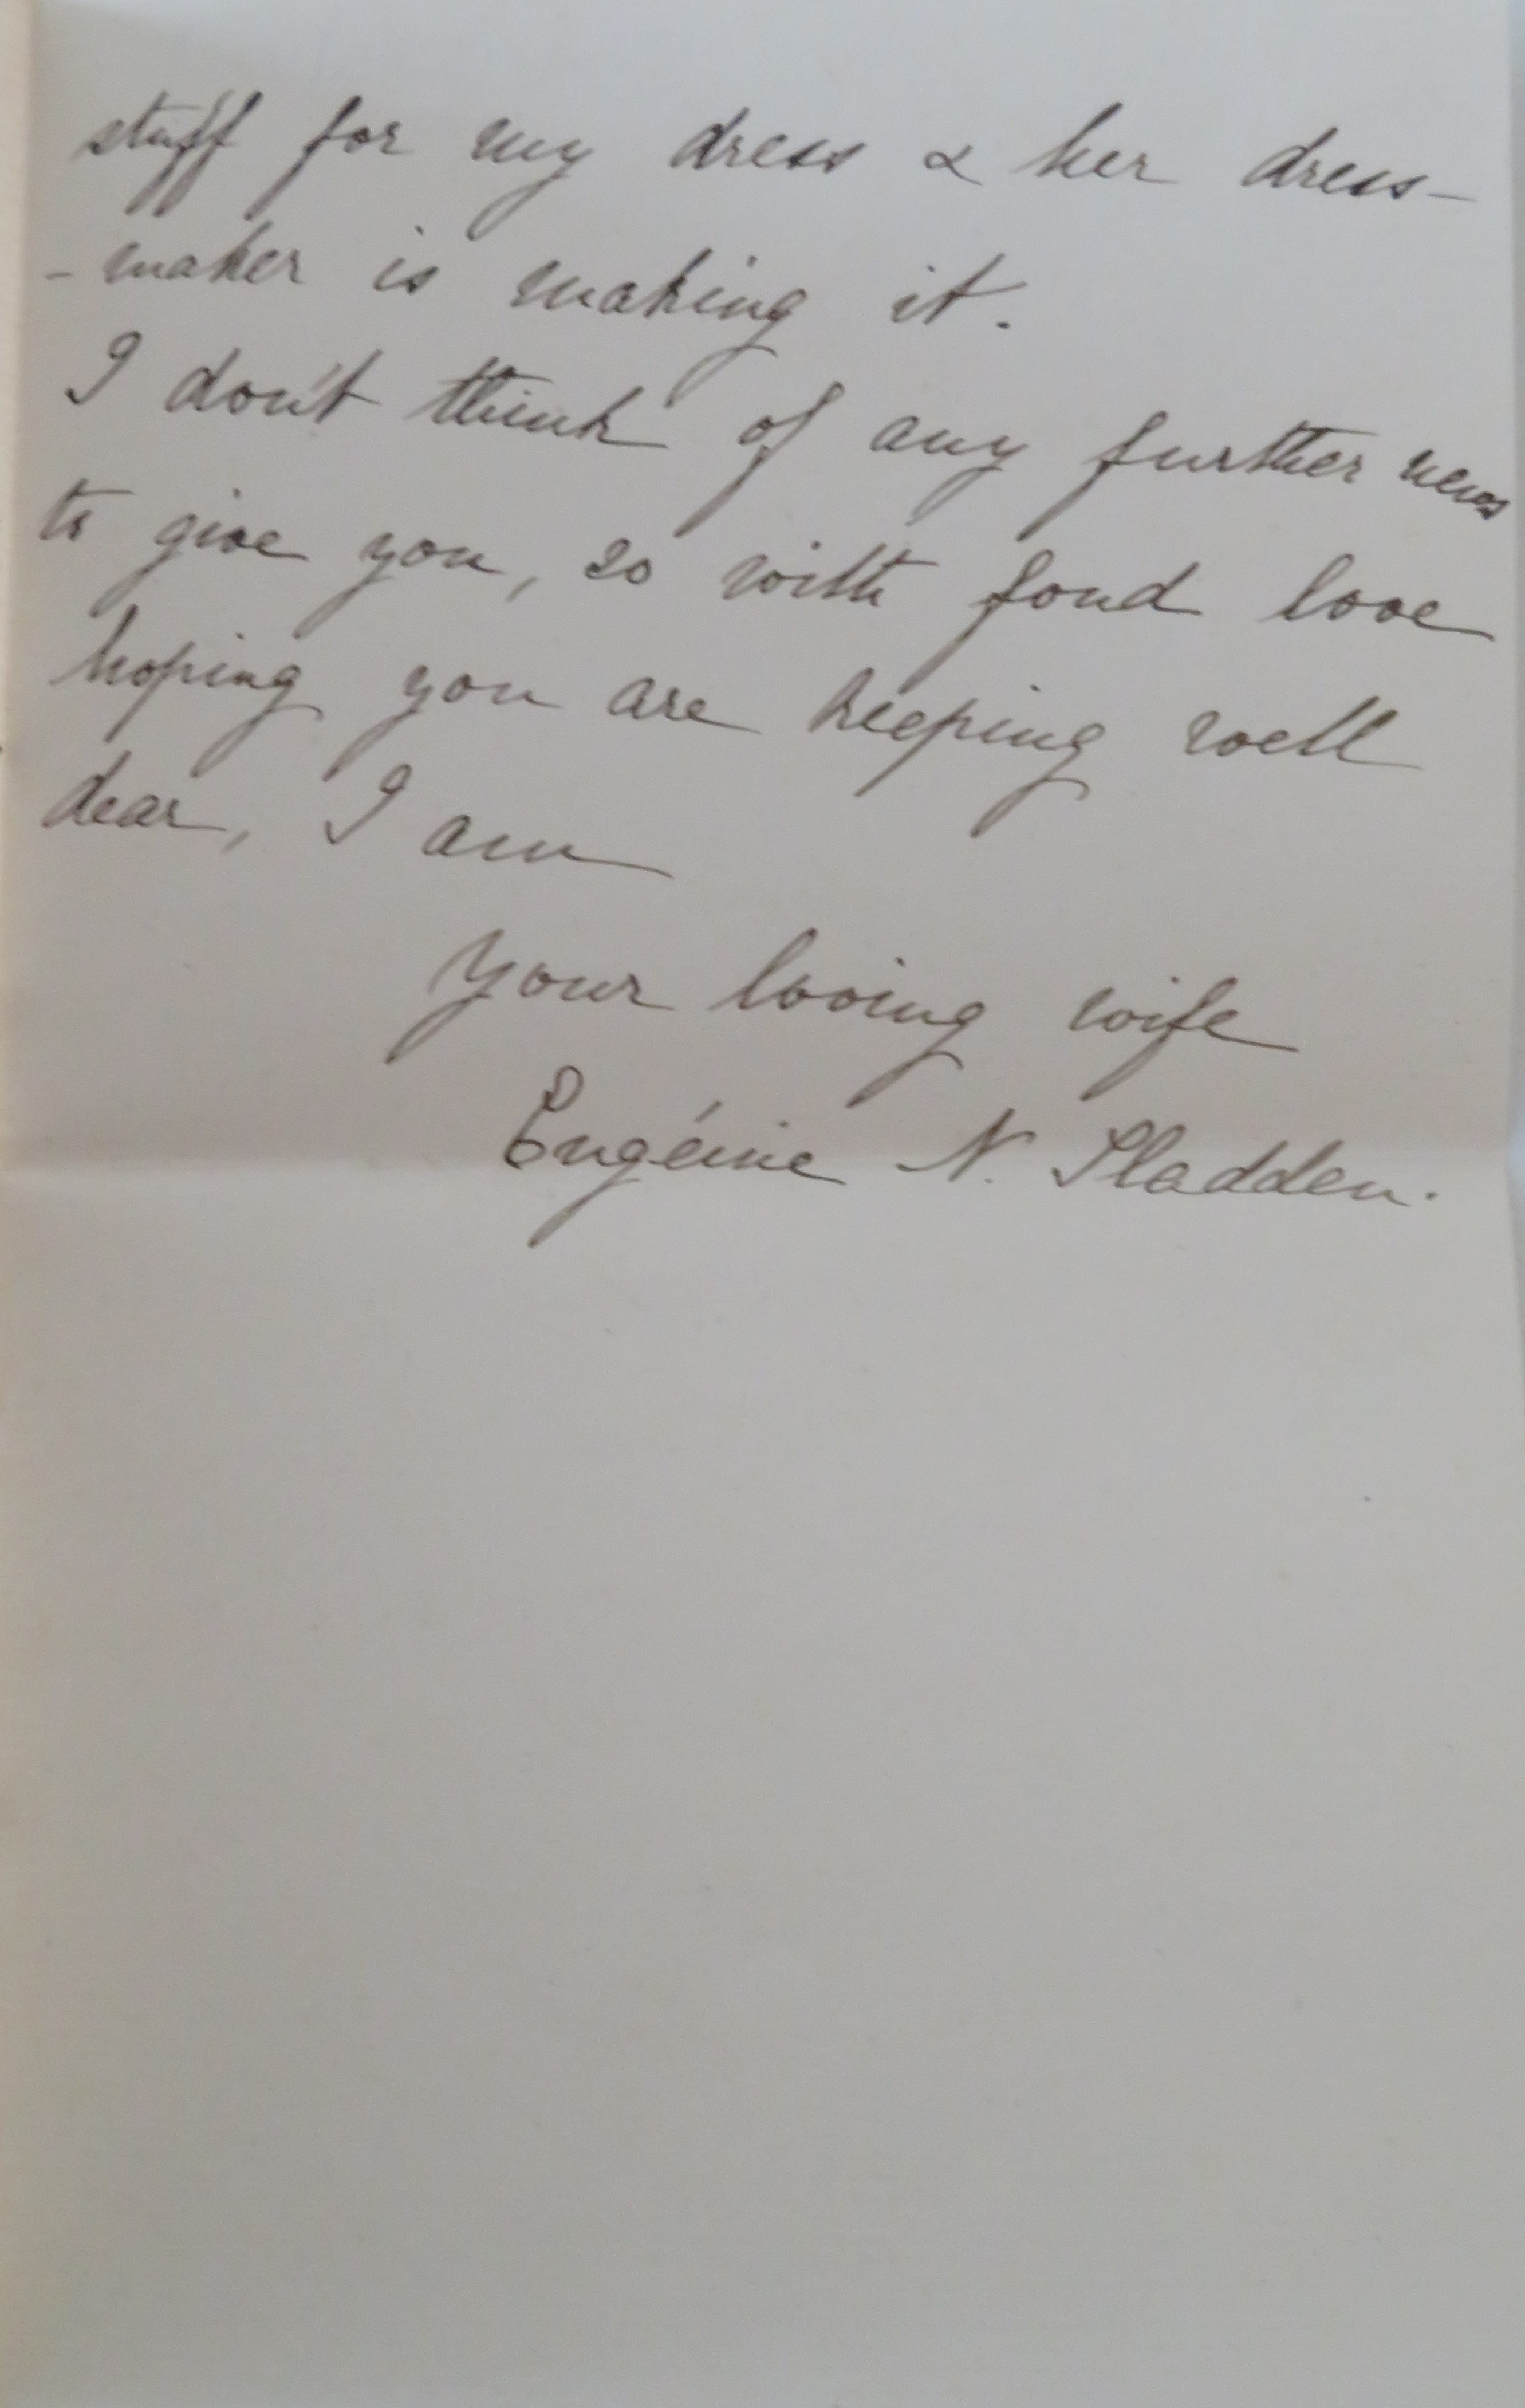 stuff for my dress & her dress-
-maker is making it.
I don't think of any further news
to give you, so with fond love
hoping you are keeping well
dear, I am
Your loving wife
Eugénie N. Sladden.